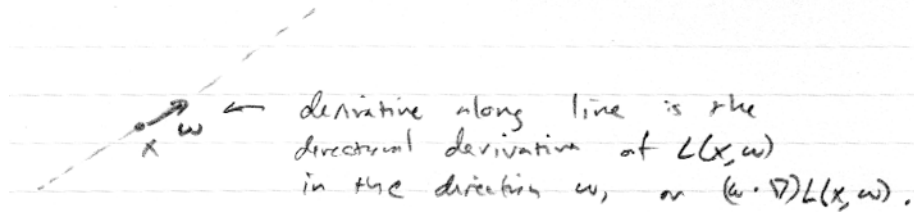 ← derivative along line is the
x ω directional derivative of L(x,ω)
in the direction ω, or (ω · ∇)L(x,ω).